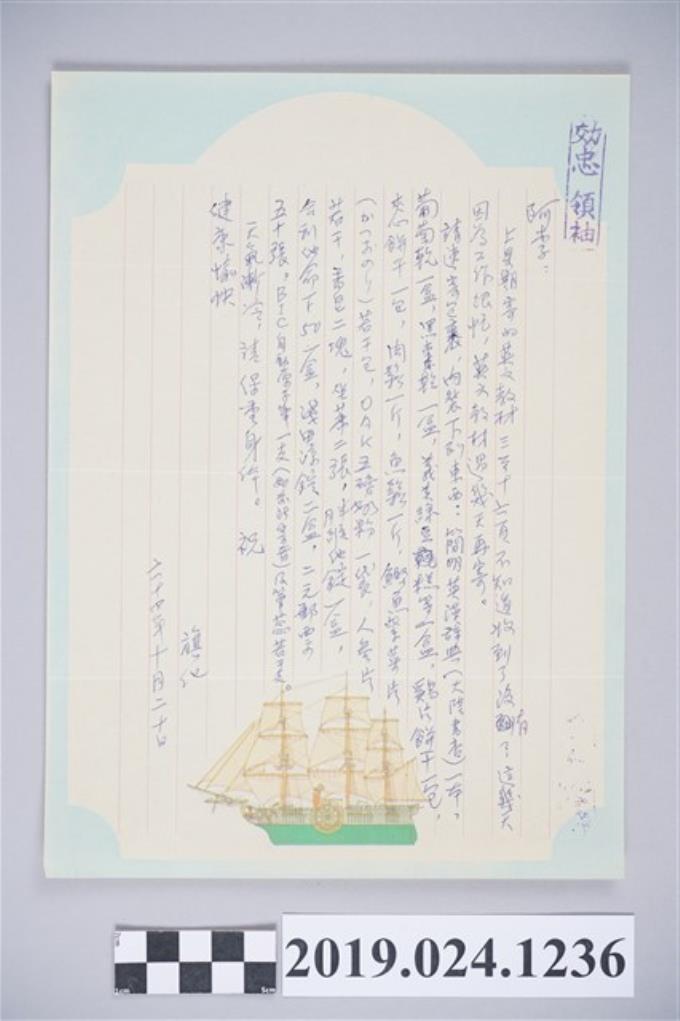 効忠領袖
阿李:
上星期寄的英文教材三至十六頁不知道收到了沒有?這幾天
因為工作很忙,英文教材過幾天再寄。
請速寄包裹,內裝下列東西:簡明英漢辭典(大陸書店)一本、
葡萄乾一盒,黑棗乾一盒,義美綠豆糕等一盒,雞片餅干一包,
夾心餅干一包,肉鬆一斤,魚鬆一斤,鰹魚紫菜片
(かつおのり)若干包,OAK五磅奶粉一袋,人參片
若干,香皂二塊,一盒,
合利他命F50一盒,淺田涼錠二盒,二元郵票
五十張,BIC自動原子筆一支(如)及筆芯若干支。
天氣漸冷,請保重身体。祝
健康愉快
旗化
六十四年十月二十日
2019.024.1236
1cm
5cm